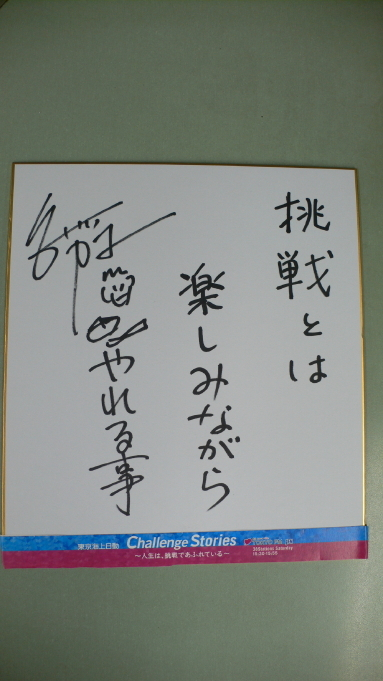 挑戦とは
楽しみながら
やれる事
東京海上日動 Challenge Stories
～人生は、挑戦であふれている～